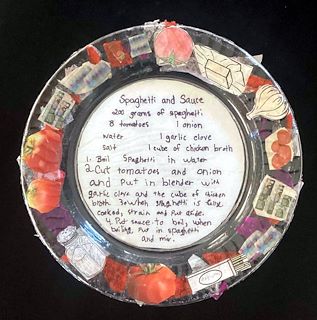 Spaghetti and Sauce
200 grams of spaghetti
8 tomatoes 1 onion
water 1 garlic clove
salt 1 cube of chicken broth
1. Boil Spaghetti in water
2. Cut tomatoes and onion
and Put in blender with
garlic clove and the cube of chicken
broth 3. When spaghetti is fully
cooked, strain and put aside.
4. Put sauce to boil, when
boiling, put in spaghetti
and mix.